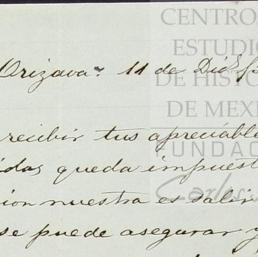 CENTRO
ESTUDI
DE HIS
DE MEX
FUNDAC
Carlos
Orizava 11 de Dic
recibir tus apreciabl
queda impuest
ion nuestra es salir
se puede asegurar y